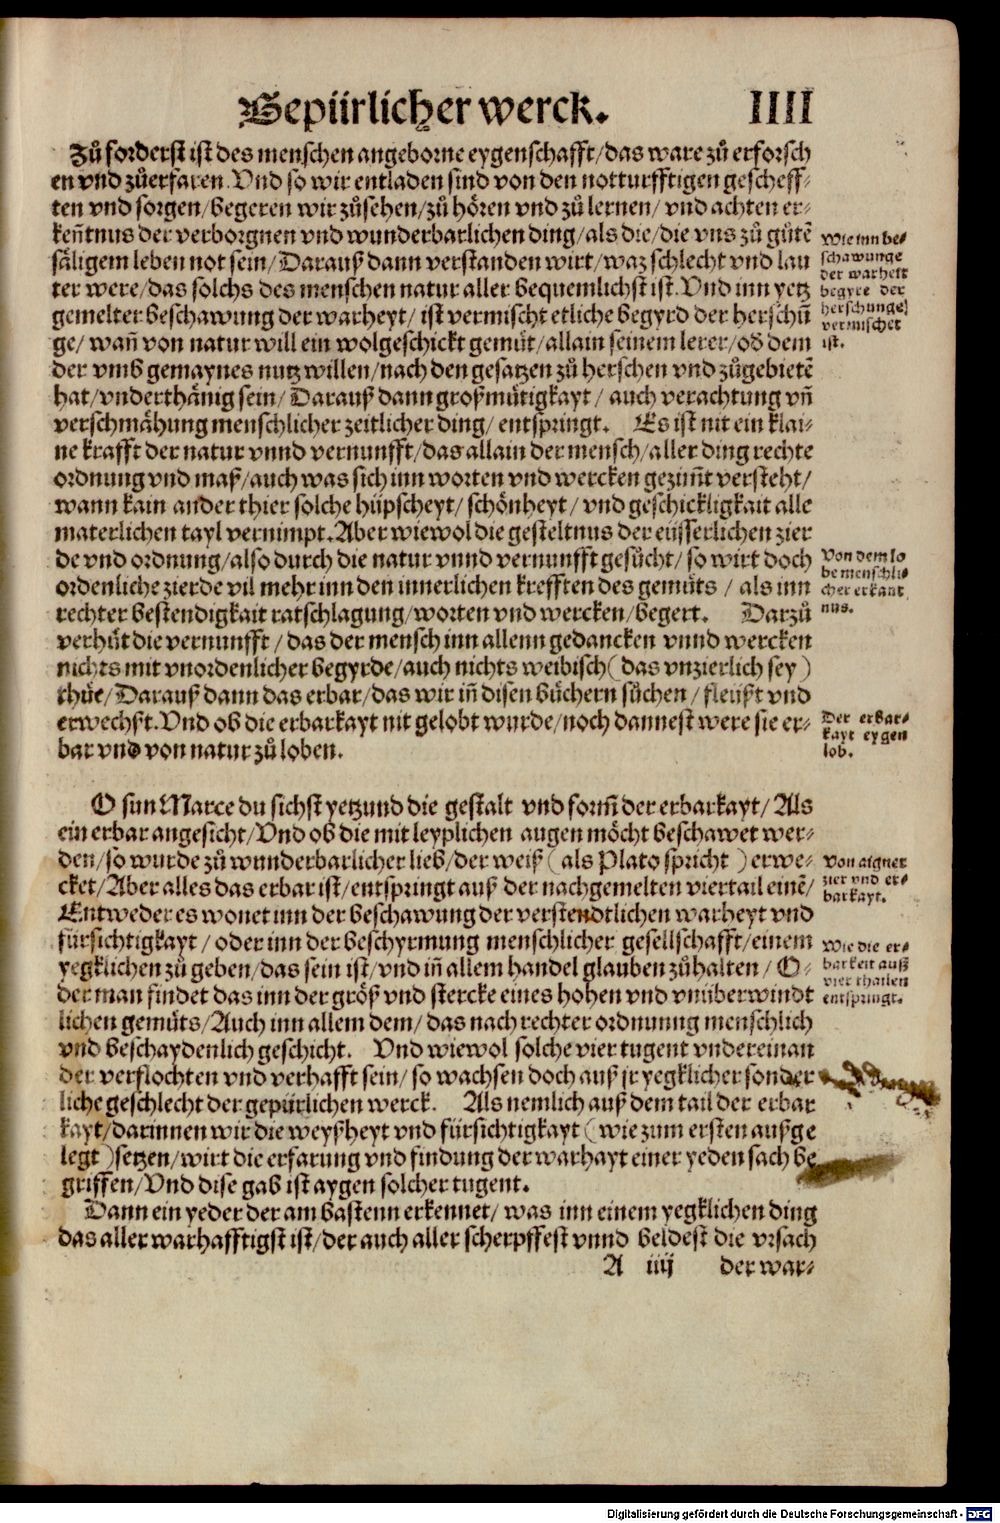 Gepürlicher werck. IIII
Zů forderst ist des menschen angeborne eygenschafft/das ware zů erforsch
en vnd zůerfaren. Vnd so wir entladen sind von den notturfftigen gescheff⸗
ten vnd sorgen/begeren wir zůsehen/zů hören vnd zů lernen/ vnd achten er⸗
keñtnus der verborgnen vnd wunderbarlichen ding/als die/die vns zů gůtē
säligem leben not sein/Darauß dann verstanden wirt/waz schlecht vnd lau
ter were/das solchs des menschen natur aller bequemlichst ist. Vnd inn yetz
gemelter beschawung der warheyt/ ist vermischt etliche begyrd der herschũ
ge/ wañ von natur will ein wolgeschickt gemüt/allain seinem lerer/ob dem
der vmb gemaynes nutz willen/nach den gesatzen zů herschen vnd zůgebietē
hat/vnderthänig sein/Darauß dann großmütigkayt/ auch verachtung vñ
verschmähung menschlicher zeitlicher ding/ entspringt. Es ist nit ein klai⸗
ne krafft der natur vnnd vernunfft/das allain der mensch/aller ding rechte
ordnung vnd maß/auch was sich inn worten vnd wercken gezim̃t versteht/
wann kain ander thier solche hüpscheyt/schönheyt/ vnd geschickligkait alle
materlichen tayl vernimpt. Aber wiewol die gesteltnus der eüsserlichen zier
de vnd ordnung/also durch die natur vnnd vernunfft gesůcht/ so wirt doch
ordenliche zierde vil mehr inn den innerlichen krefften des gemüts / als inn
rechter bestendigkait ratschlagung/worten vnd wercken/begert. Darzů
verhüt die vernunfft / das der mensch inn allenn gedancken vnnd wercken
nichts mit vnordenlicher begyrde/auch nichts weibisch (das vnzierlich sey)
thüe/Darauß dann das erbar/das wir iñ disen bůchern sůchen / fleüßt vnd
erwechst. Vnd ob die erbarkayt nit gelobt wurde/noch dannest were sie er⸗
bar vnd von natur zů loben.
O sun Marce du sichst yetzund die gestalt vnd form̃ der erbarkayt/Als
ein erbar angesicht/Vnd ob die mit leyplichen augen möcht beschawet wer⸗
den/so wurde zů wunderbarlicher lieb/der weiß (als Plato spricht) erwe⸗
cket/Aber alles das erbar ist/entspringt auß der nachgemelten viertail einē/
Entweder es wonet inn der beschawung der verstendtlichen warheyt vnd
fürsichtigkayt / oder inn der beschyrmung menschlicher gesellschafft/einem
yegklichen zů geben/das sein ist/vnd iñ allem handel glauben zůhalten / O⸗
der man findet das inn der größ vnd stercke eines hohen vnd vnüberwindt
lichen gemüts/Auch inn allem dem/ das nach rechter ordnung menschlich
vnd beschaydenlich geschicht. Vnd wiewol solche vier tugent vndereinan
der verflochten vnd verhafft sein/ so wachsen doch auß jr yegklicher sonder
liche geschlecht der gepürlichen werck. Als nemlich auß dem tail der erbar
kayt/darinnen wir die weyßheyt vnd fürsichtigkayt (wie zum ersten außge
legt) setzen/wirt die erfarung vnd findung der warhayt einer yeden sach be
griffen/Vnd dise gab ist aygen solcher tugent.
Dann ein yeder der am bastenn erkennet/ was inn einem yegklichen ding
das aller warhafftigst ist/der auch aller scherpffest vnnd beldest die vrsach
A iiij der war⸗
Wie inn be⸗
schawunge
der warheit
begyre der
herschunge
vermischet
ist.
Von dem lo
be menschli⸗
cher erkant
nus.
Der erbar⸗
kayt eygen
lob.
Von aigner
zier vnd er⸗
barkayt.
Wie die er⸗
barkeit auß
vier thailen
entspringt.
Digitalisierung gefördert durch die Deutsche Forschungsgemeinschaft - DFG